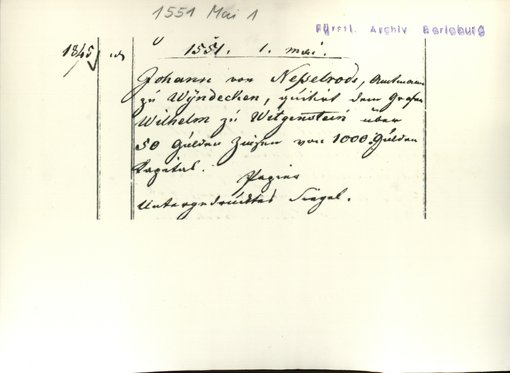 1551 Mai 1
Fürstl. Archiv Berleburg
1845
1551. 1. Mai.
Johann von Neßelrode, Amtmann
zu Wyndecken, quitirt dem Grafen
Wilhelm zu Witgenstein über
50 Gulden Zinsen von 1000 Gulden
Kapital.
Papier
Untergedrücktes Siegel.